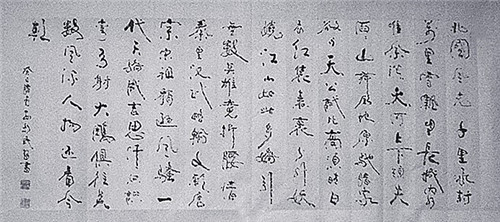 北國風光千里冰封
萬里雪飄望長城內外
惟餘莽莽大河上下頓失
山舞銀蛇原馳蠟象
欲與天公試比高須晴日
看紅裝素裹分外妖
嬈江山如此多嬌引
無數英雄競折腰惜
秦皇漢武略輸文采唐
宗宋祖稍遜風騷一
代天驕成吉思汗只識
彎弓射大鵰俱往矣
數風流人物還看今
朝